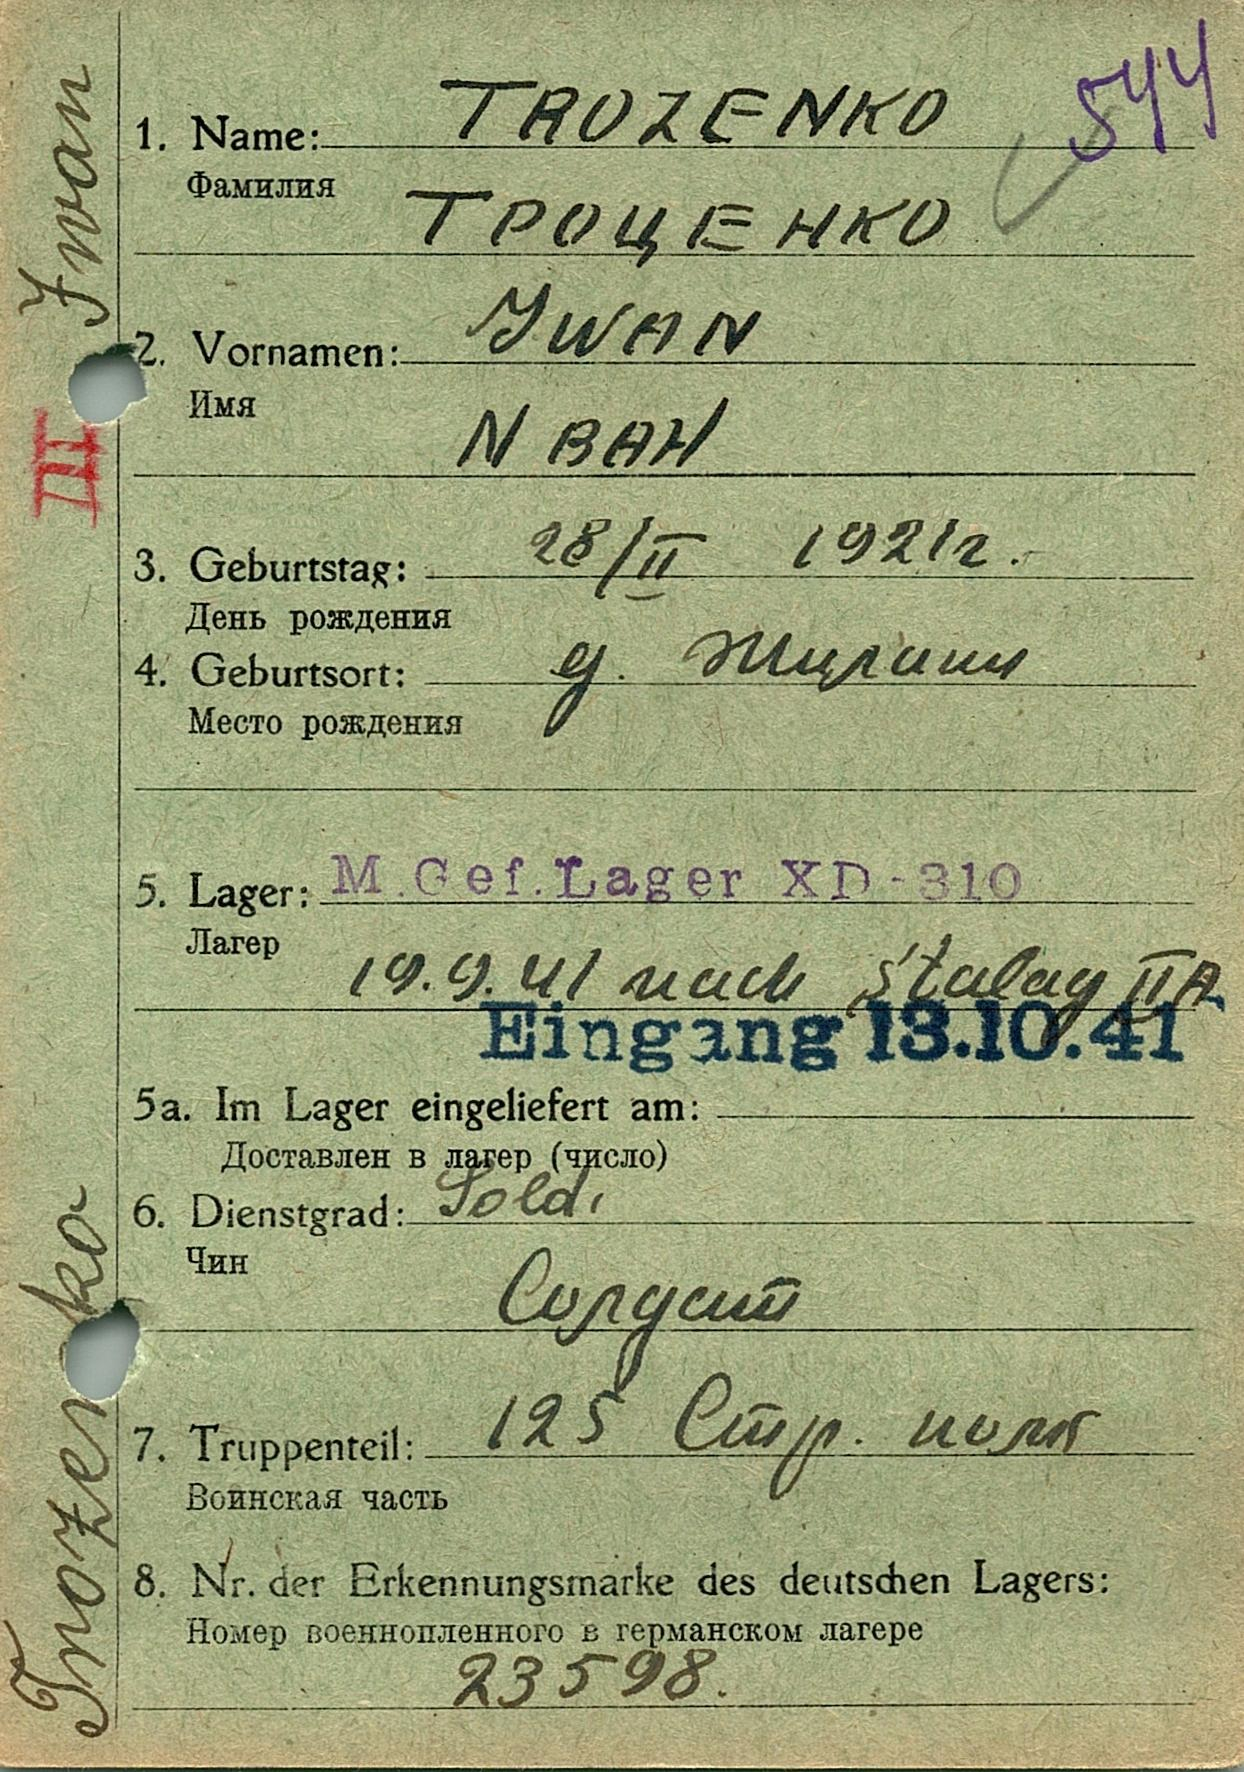 544
1. Name: TROZENKO
Фамилия
ТРОЦЕНКО
2. Vornamen: IWAN
Имя
ИВАН
3. Geburtstag: 28/II 1921г.
День рождения
4. Geburtsort: д.
Место рождения
5. Lager: M.Gef.Lager XD-310
Лагер
19.9.41 nach Stalag II A
Eingang 13.10.41
5a. Im Lager eingeliefert am:
Доставлен в лагер (число)
6. Dienstgrad: Sold.
Чин
Солдат
7. Truppenteil: 125 Стр. полк
Воинская часть
8. Nr. der Erkennungsmarke des deutschen Lagers:
Номер военнопленного в германском лагере
23598.
Trozenko Iwan
III